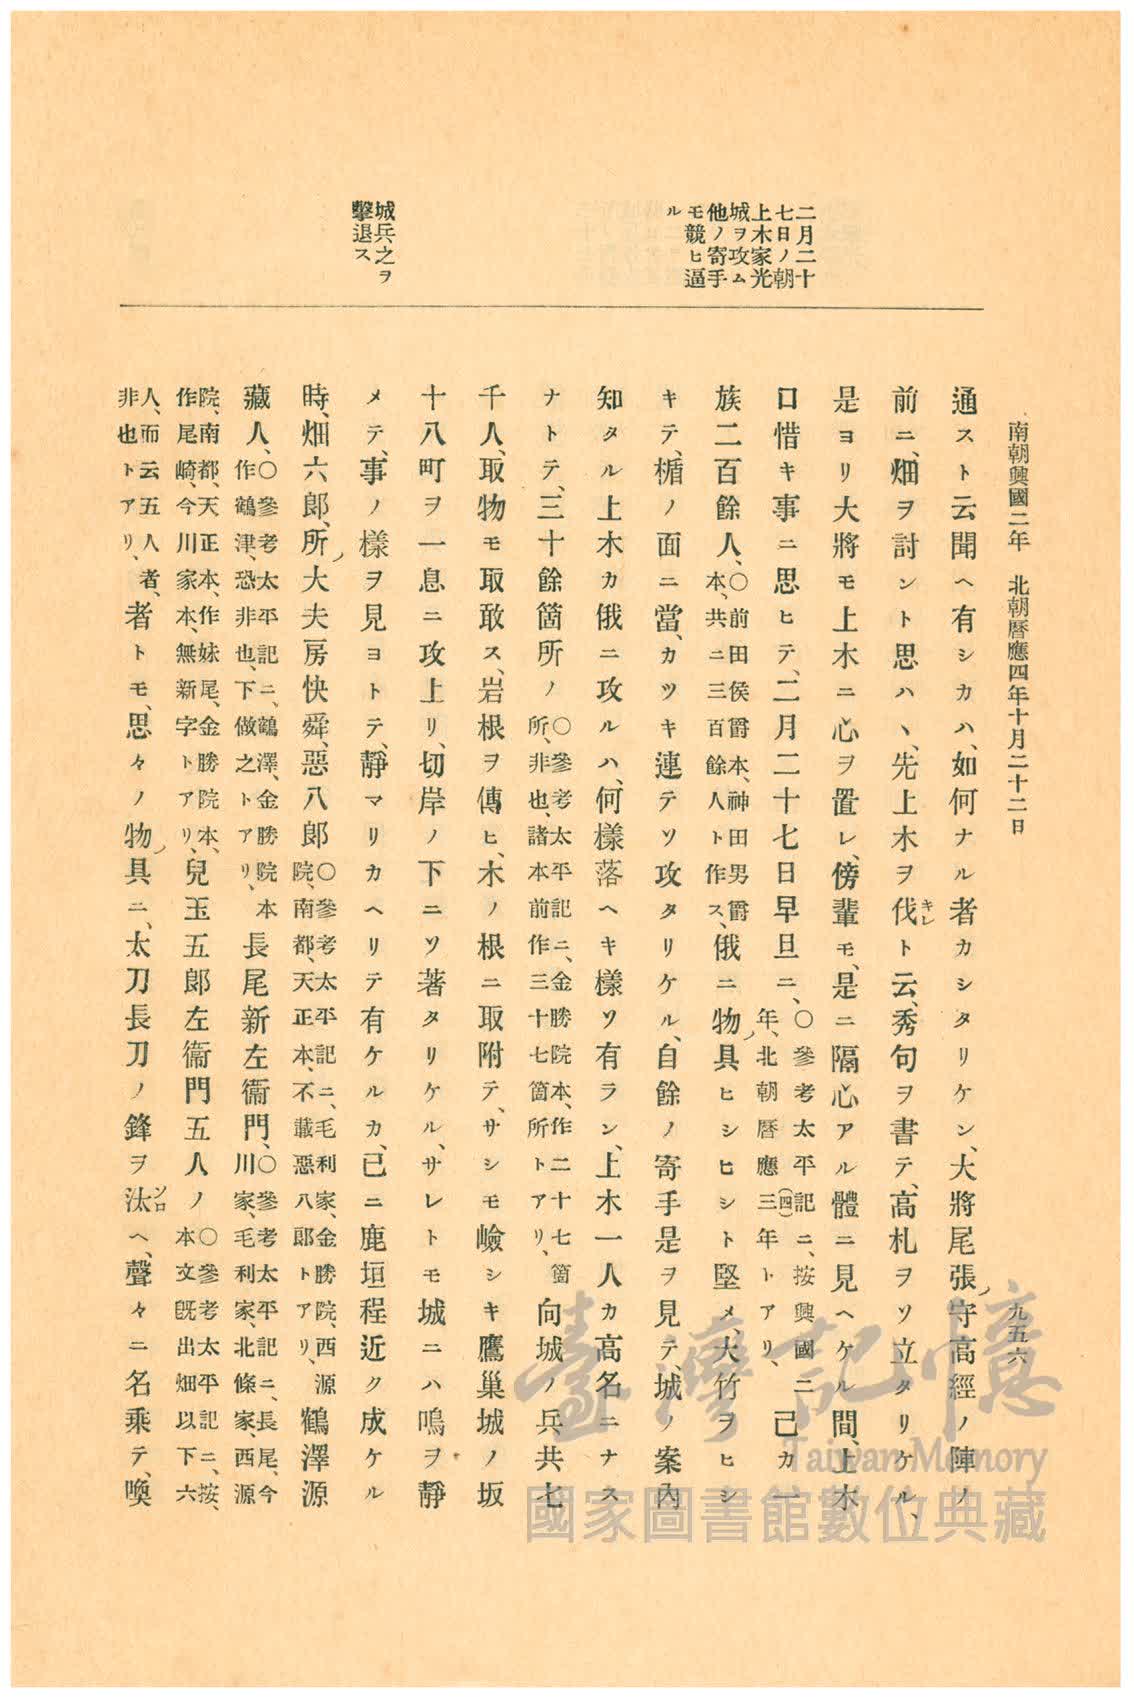 南朝興國二年　北朝曆應四年十月二十二日
九五六
二月二十
七日ノ朝
上木家光
城ヲ攻ム
他ノ寄手
モ競ヒ逼
ル
城兵之ヲ
擊退ス
通スト云聞ヘ有シカハ、如何ナル者カシタリケン、大將尾張守高經ノ陣ノ
前ニ、畑ヲ討ント思ハヽ、先上木ヲ伐キレト云、秀句ヲ書テ、高札ヲソ立タリケル、
是ヨリ大將モ上木ニ心ヲ置レ、傍輩モ、是ニ隔心アル體ニ見ヘケル間、上木
口惜キ事ニ思ヒテ、二月二十七日早旦ニ、○參考太平記ニ、按興國二年、北朝曆應三(四)年トアリ、己カ一
族二百餘人、○前田侯爵本、神田男爵本、共ニ三百餘人ト作ス、俄ニ物具ヒシヒシト堅メ、大竹ヲヒシ
キテ、楯ノ面ニ當、カツキ連テソ攻タリケル、自餘ノ寄手是ヲ見テ、城ノ案內
知タル上木カ俄ニ攻ルハ、何樣落ヘキ樣ソ有ラン、上木一人カ高名ニナス
ナトテ、三十餘箇所ノ○參考太平記ニ、金勝院本、作二十七箇所、非也、諸本前作三十七箇所トアリ、向城ノ兵共七
千人、取物モ取敢ス、岩根ヲ傳ヒ、木ノ根ニ取附テ、サシモ嶮シキ鷹巢城ノ坂
十八町ヲ一息ニ攻上リ、切岸ノ下ニソ著タリケル、サレトモ城ニハ鳴ヲ靜
メテ、事ノ樣ヲ見ヨトテ、靜マリカヘリテ有ケルカ、已ニ鹿垣程近ク成ケル
時、畑六郎、所大夫房快舜、惡八郎○參考太平記ニ、毛利家、金勝院、西源院、南都、天正本、不載惡八郎トアリ、鶴澤源
藏人、○參考太平記ニ、鶴澤、金勝院本作鶴津、恐非也、下倣之トアリ、長尾新左衞門、○參考太平記ニ、長尾、今川家、毛利家、北條家、西源
院、南都、天正本、作妹尾、金勝院本、作尾崎、今川家本、無新字トアリ、兒玉五郎左衞門五人ノ○參考太平記ニ、按、本文旣出畑以下六
人、而云五人者、非也トアリ、者トモ、思々ノ物具ニ、太刀長刀ノ鋒ヲ汰ソロヘ、聲々ニ名乘テ、喚
臺灣記憶
Taiwan Memory
國家圖書館數位典藏